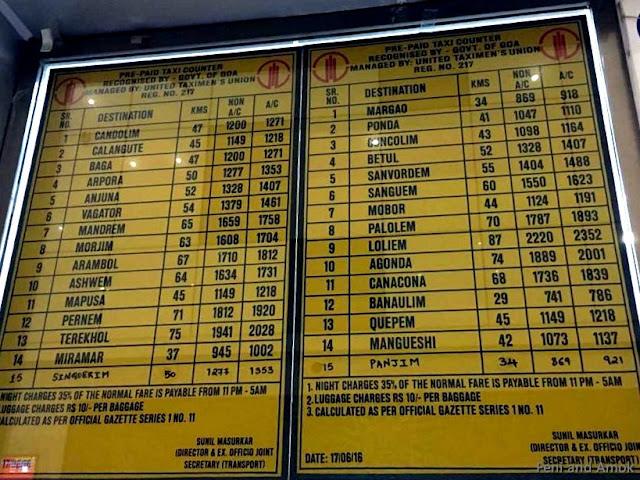 PRE-PAID TAXI COUNTER
RECOGNISED BY - GOVT. OF GOA
MANAGED BY: UNITED TAXIMEN'S UNION
REG. NO. 217
SR. NO. DESTINATION KMS NON A/C A/C
1 CANDOLIM 47 1200 1271
2 CALANGUTE 45 1149 1218
3 BAGA 47 1200 1271
4 ARPORA 50 1277 1353
5 ANJUNA 52 1328 1407
6 VAGATOR 54 1379 1461
7 MANDREM 65 1659 1758
8 MORJIM 63 1608 1704
9 ARAMBOL 67 1710 1812
10 ASHWEM 64 1634 1731
11 MAPUSA 45 1149 1218
12 PERNEM 71 1812 1920
13 TEREKHOL 75 1941 2028
14 MIRAMAR 37 945 1002
15 SINGUERIM 50 1277 1353
1. NIGHT CHARGES 35% OF THE NORMAL FARE IS PAYABLE FROM 11 PM - 5AM
LUGGAGE CHARGES RS 10/- PER BAGGAGE
CALCULATED AS PER OFFICIAL GAZETTE SERIES 1 NO. 11
SUNIL MASURKAR
(DIRECTOR & EX. OFFICIO JOINT
SECRETARY (TRANSPORT)
PRE-PAID TAXI COUNTER
RECOGNISED BY - GOVT. OF GOA
MANAGED BY: UNITED TAXIMEN'S UNION
REG. NO. 217
SR. NO. DESTINATION KMS NON A/C A/C
1 MARGAO 34 869 918
2 PONDA 41 1047 1110
3 CUNCOLIM 43 1098 1164
4 BETUL 52 1328 1407
5 SANVORDEM 55 1404 1488
6 SANGUEM 60 1550 1623
7 MOBOR 44 1124 1191
8 PALOLEM 70 1787 1893
9 LOLIEM 87 2220 2352
10 AGONDA 74 1889 2001
11 CANACONA 68 1736 1839
12 BANAULIM 29 741 786
13 QUEPEM 45 1149 1218
14 MANGUESHI 42 1073 1137
15 PANJIM 34 869 921
1. NIGHT CHARGES 35% OF THE NORMAL FARE IS PAYABLE FROM 11 PM - 5AM
2. LUGGAGE CHARGES RS 10/- PER BAGGAGE
3. CALCULATED AS PER OFFICIAL GAZETTE SERIES 1 NO. 11
SUNIL MASURKAR
(DIRECTOR & EX. OFFICIO JOINT
SECRETARY (TRANSPORT)
DATE: 17/06/16
Feni and Amok